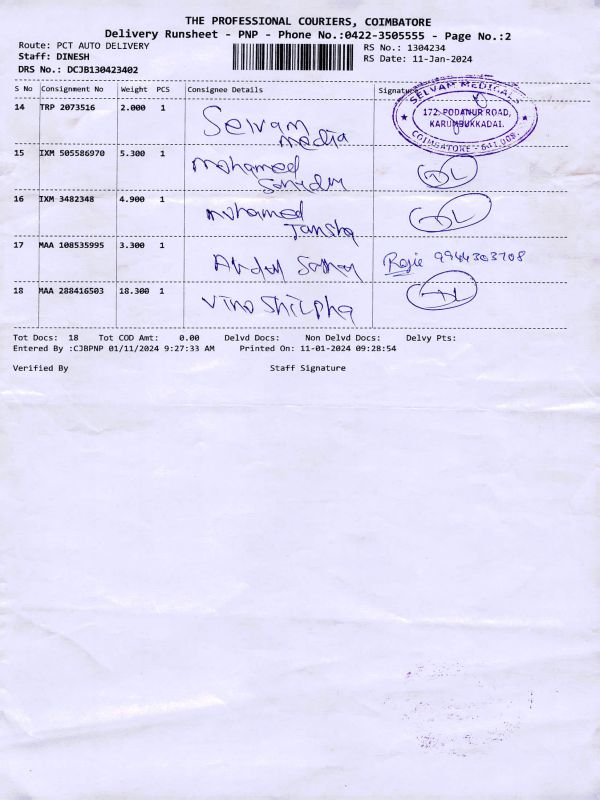 THE PROFESSIONAL COURIERS, COIMBATORE
Delivery Runsheet - PNP - Phone No.:0422-3505555 - Page No.:2
Route: PCT AUTO DELIVERY
RS No.: 1304234
Staff: DINESH
RS Date: 11-Jan-2024
DRS No.: DCJB130423402
S No Consignment No Weight PCS Consignee Details Signature
14 TRP 2073516 2.000 1 Selvam
media
SELVAM MEDICALS
172, PODANUR ROAD,
KARUMBUKKADAI.
COIMBATORE - 641 008.
15 IXM 505586970 5.300 1 mohamed
DL
16 IXM 3482348 4.900 1 mohamed
DL
17 MAA 108535995 3.300 1 Abdul
9944303708
18 MAA 288416503 18.300 1 Vino Shilpha
Tot Docs: 18 Tot COD Amt: 0.00 Delvd Docs: Non Delvd Docs: Delvy Pts:
Entered By :CJBPNP 01/11/2024 9:27:33 AM Printed On: 11-01-2024 09:28:54
Verified By Staff Signature